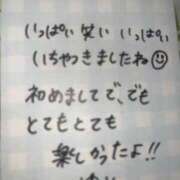 いっぱい笑い いっぱい
いちゃつきましたね
初めましてで、でも
とてもとても
楽しかったよ!!